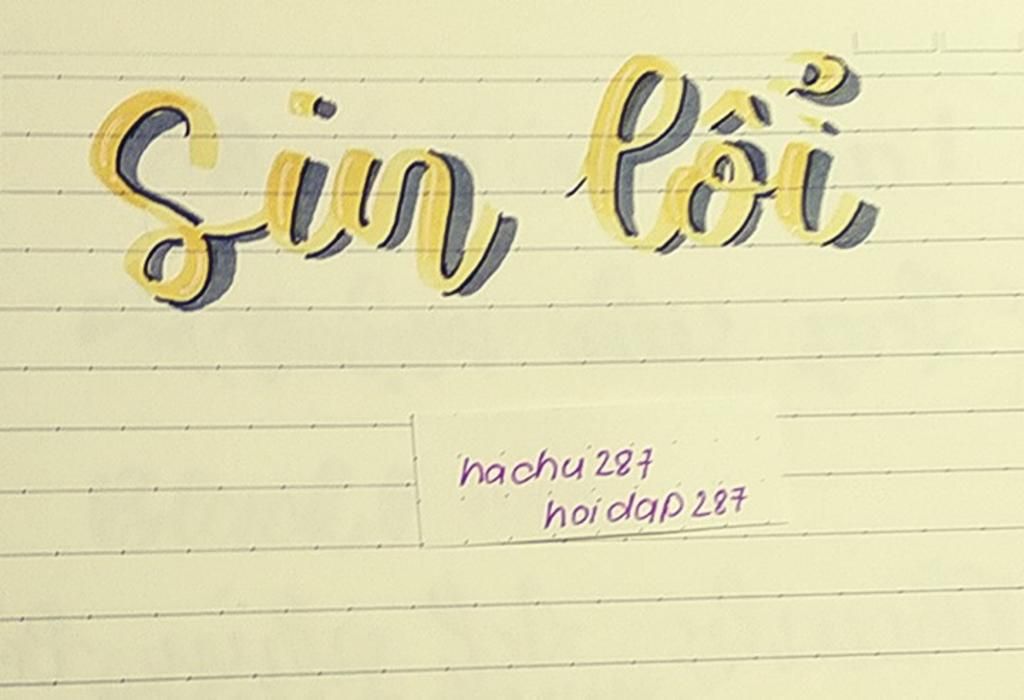 Sin lổi
hachu287
hoidap287